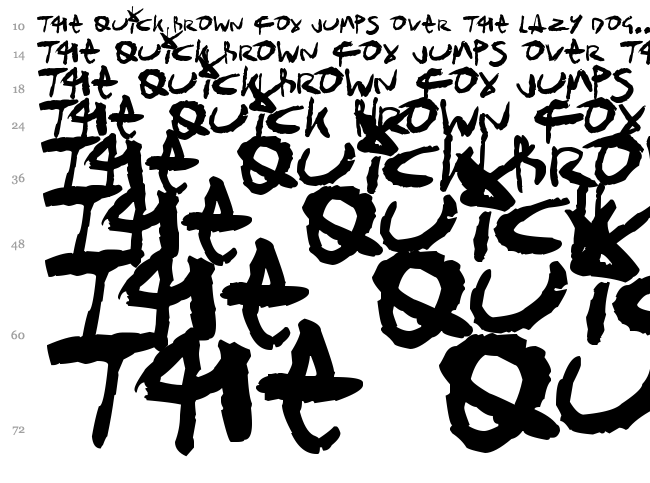 10 THE QUiCK BROWN FOX JUMPS OVER THE LAZY DOG..
14 THE QUiCK BROWN FOX JUMPS OVER T
18 THE QUiCK BROWN FOX JUMPS
24 THE QUiCK BROWN FOX
36 THE QUiCK BRO
48 THE QUiCK
60 THE QUiC
72 THE QU